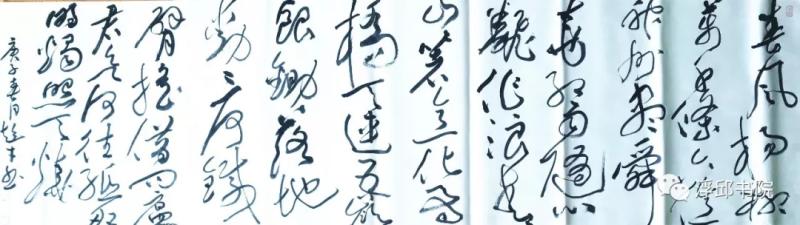 春风杨柳
万千条六亿
神州尽舜
尧红雨随心
翻作浪青
山着意化为
桥天连五岭
银锄落地
动三河铁
臂摇借问瘟
君欲何往纸船
明烛照天烧
庚子春月书
浮邱书院